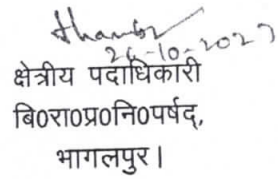 26-10-2023
क्षेत्रीय पदाधिकारी
बि0रा0प्र0नि0पर्षद्,
भागलपुर।